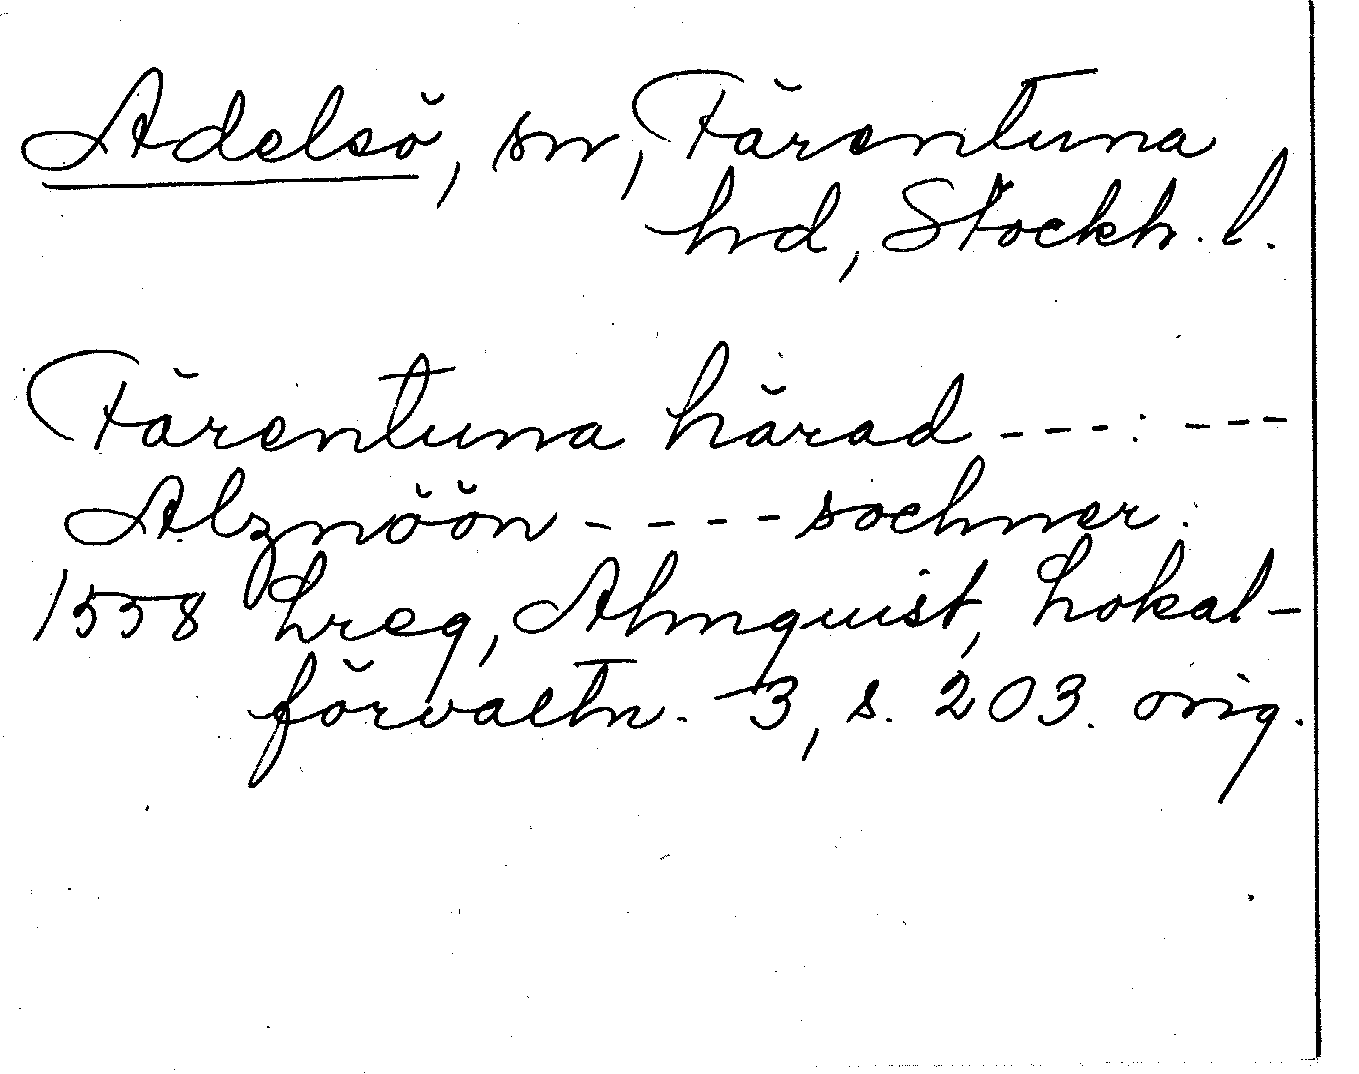 Adelsö, sn, Färentuna
hd, Stockh. l.
Färentuna härad ---: ---
Alzmöön ---- sochner.
1558 Lreg, Almquist, Lokal-
förvaltn. 3, s. 203. orig.